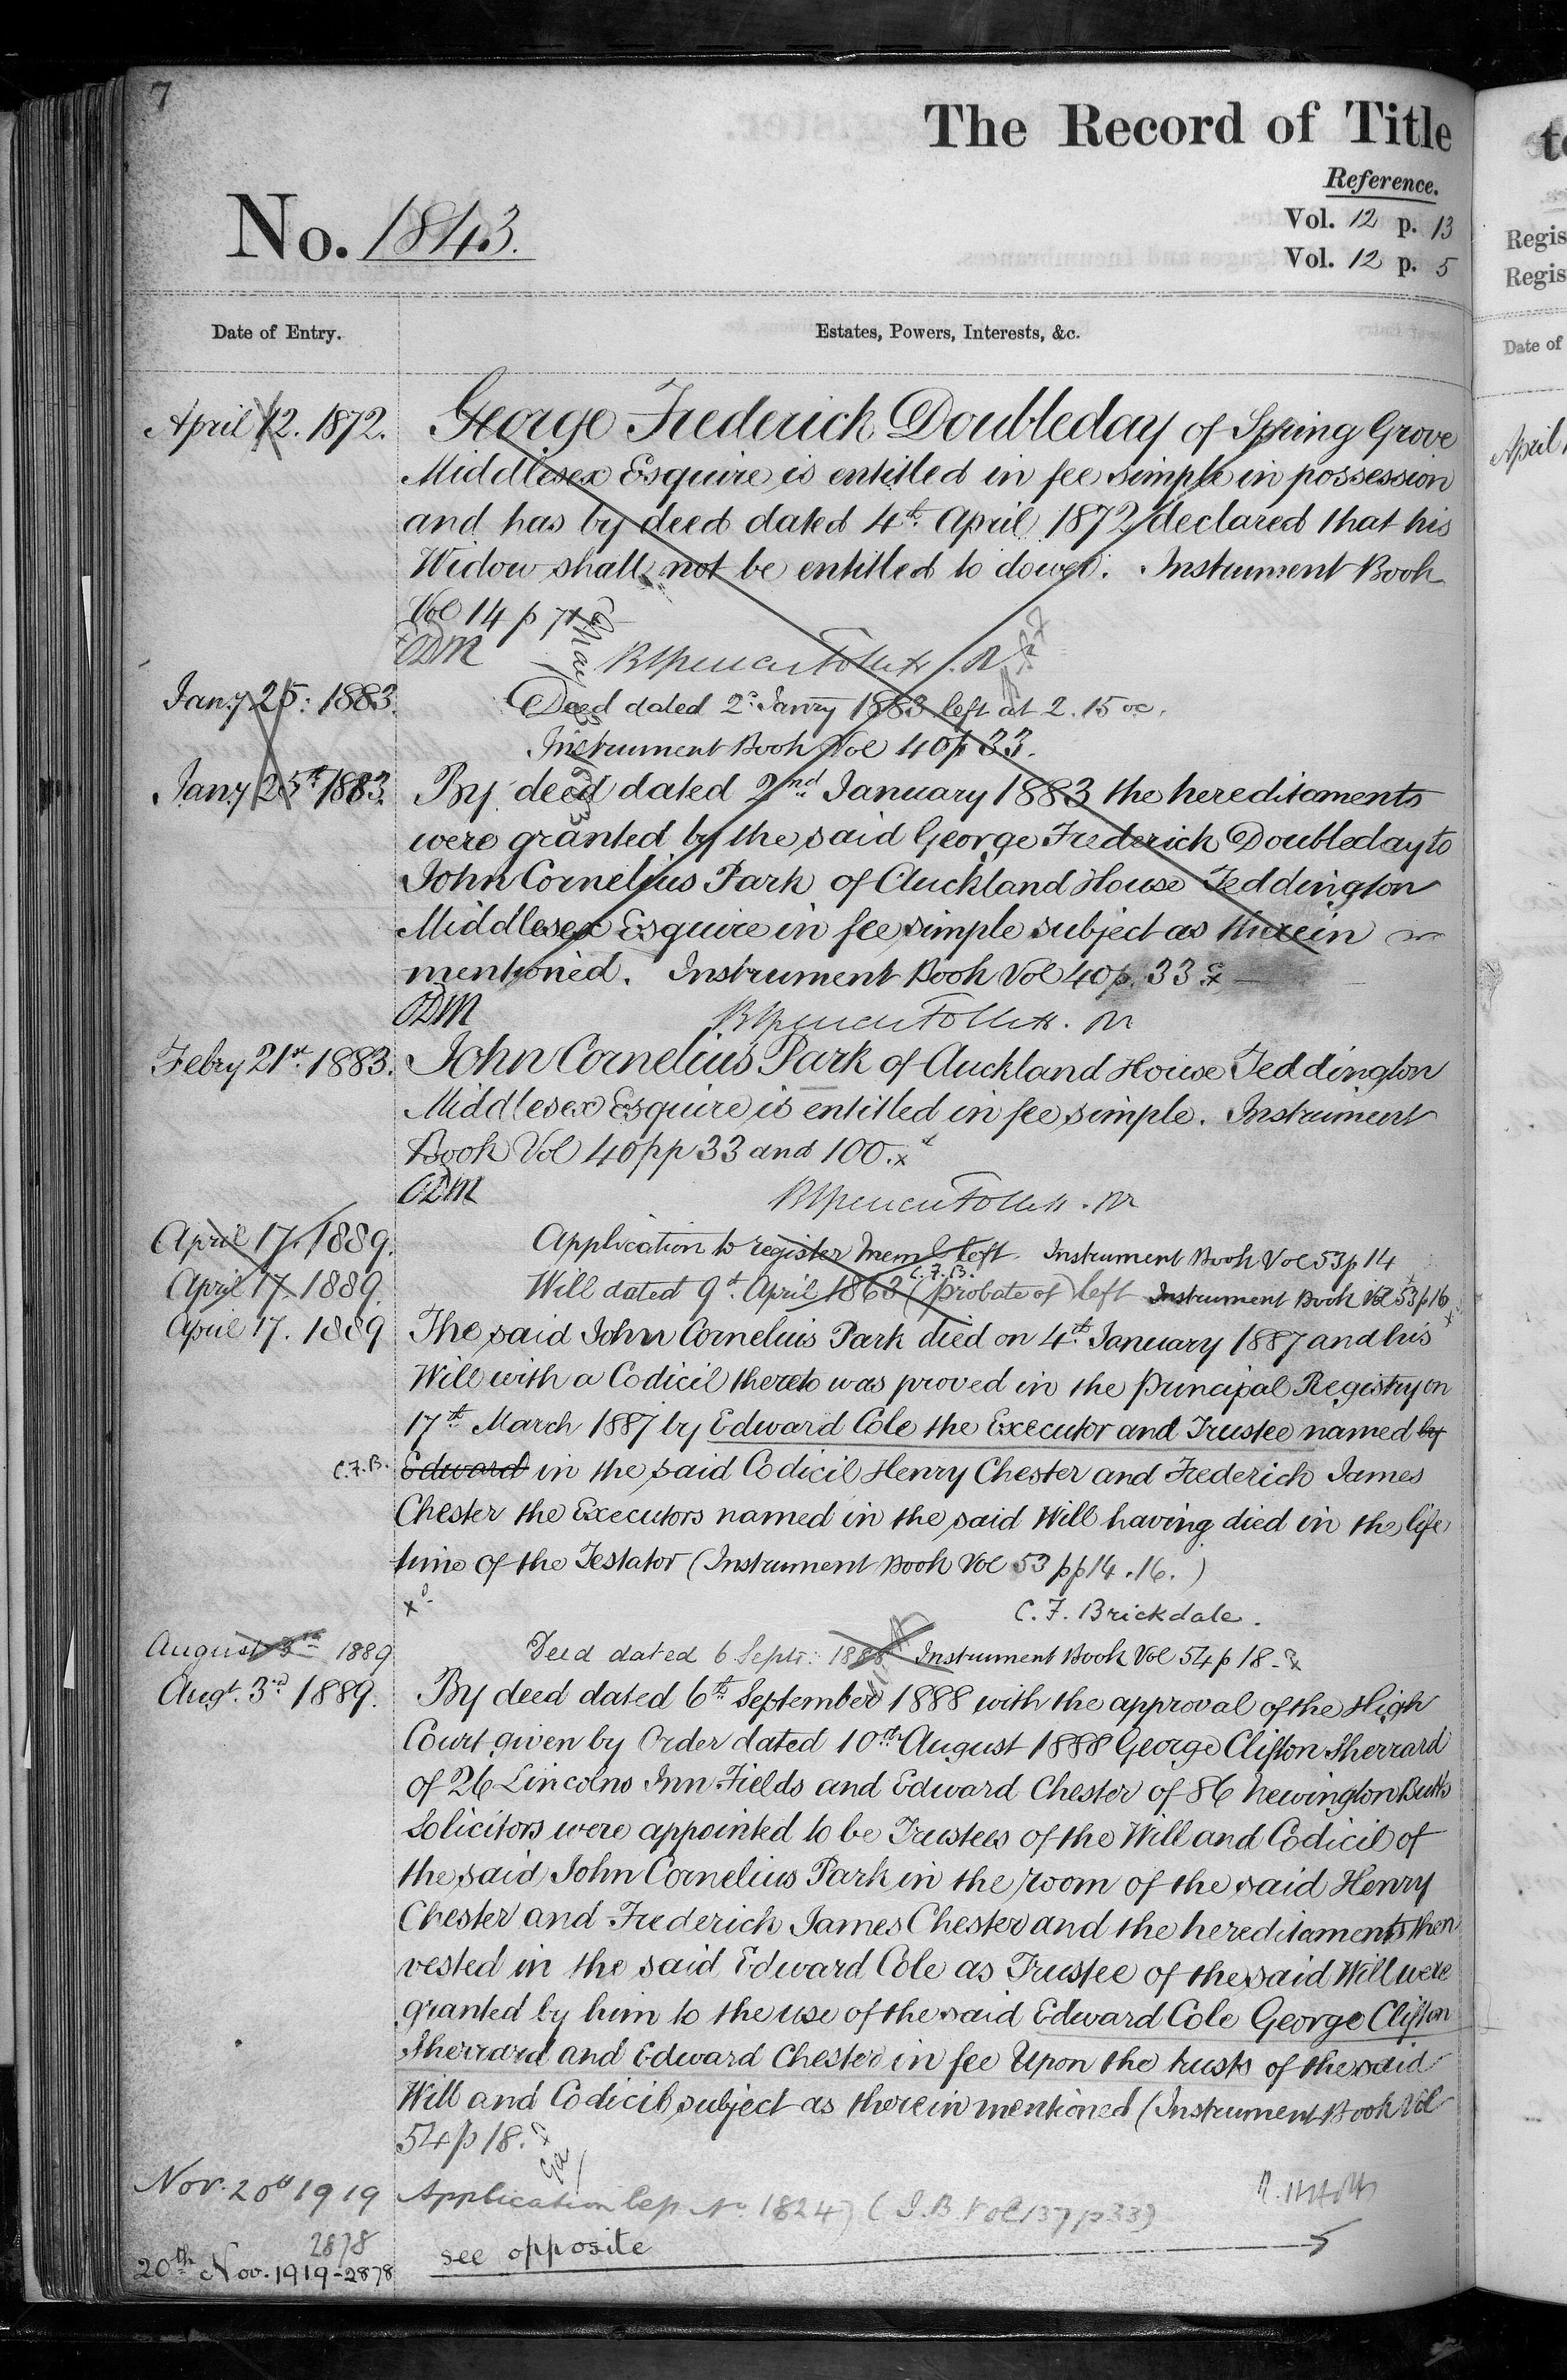 7
The Record of Title
Reference.
No. 1843.
Vol. 12 p. 13
Vol. 12 p. 5
Date of Entry.
Estates, Powers, Interests, &c.
April 12. 1872. George Frederick Doubleday of Spring Grove
Middlesex Esquire is entitled in fee simple in possession
and has by deed dated 4th April 1872 declared that his
Widow shall not be entitled to dower. Instrument Book
Vol 14 p 71
ODM
Jany 25: 1883. Deed dated 2d Janry 1883 left at 2.15 oc.
Instrument Book Vol 40 p 33.
Jany 25th 1883. By deed dated 2nd January 1883 the hereditaments
were granted by the said George Frederick Doubleday to
John Cornelius Park of Auckland House Teddington
Middlesex Esquire in fee simple subject as therein
mentioned. Instrument Book Vol 40 p. 33 x
ODM
Febry 21st. 1883. John Cornelius Park of Auckland House Teddington
Middlesex Esquire is entitled in fee simple. Instrument
Book Vol 40 pp 33 and 100. x
ODM
April 17. 1889. Application to register Meml left. Instrument Book Vol 53 p 14
C.F.B.
April 17. 1889. Will dated 9th April 1863 (Probate of) left Instrument Book Vol 53 p 16
April 17. 1889 The said John Cornelius Park died on 4th January 1887 and his
Will with a Codicil thereto was proved in the Principal Registry on
17th March 1887 by Edward Cole the Executor and Trustee named by
C.F.B. Edward in the said Codicil Henry Chester and Frederick James
Chester the Executors named in the said Will having died in the life
time of the Testator (Instrument Book Vol 53 pp 14.16.)
x
C. F. Brickdale.
August 3rd 1889 Deed dated 6 Septr: 1888 Instrument Book Vol 54 p 18 - x
Augt. 3rd 1889. By deed dated 6th September 1888 with the approval of the High
Court given by Order dated 10th August 1888 George Clifton Sherrard
of 26 Lincolns Inn Fields and Edward Chester of 86 Newington Butts
Solicitors were appointed to be Trustees of the Will and Codicil of
the said John Cornelius Park in the room of the said Henry
Chester and Frederick James Chester and the hereditaments then
vested in the said Edward Cole as Trustee of the said Will were
granted by him to the use of the said Edward Cole George Clifton
Sherrard and Edward Chester in fee Upon the trusts of the said
Will and Codicil subject as therein mentioned (Instrument Book Vol
54 p 18.
Nov. 20th 1919 Application No 1824) (I.B. Vol 137 p 33)
2878
20th Nov. 1919 - 2878 see opposite
Regis
Regis
Date of
April